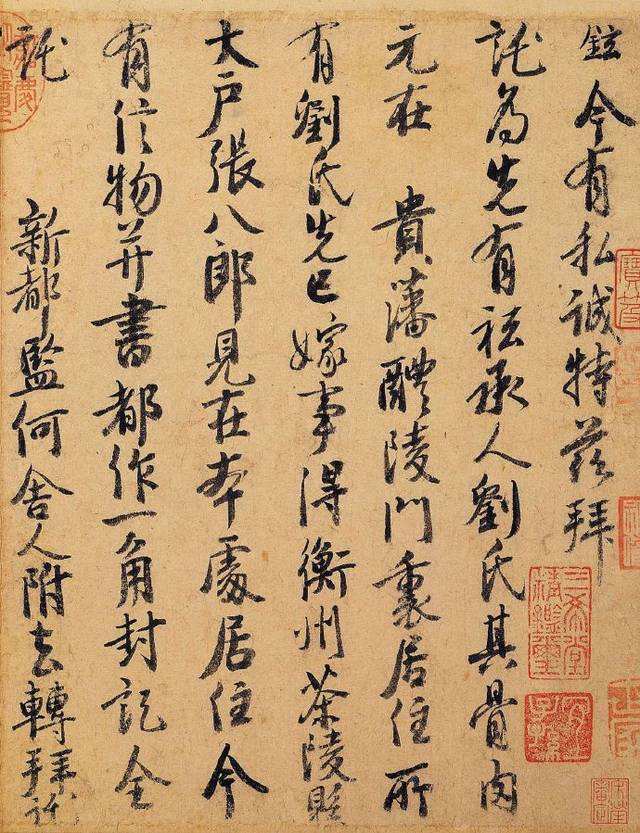 鉉今有私誠特茲拜
託為先有祗承人劉氏其骨肉
元在 貴藩醴陵門裏居住所
有劉氏先已嫁事得衡州茶陵縣
大戶張八郎見在本處居住今
有信物并書都作一角封記全
託 新都監何舍人附去轉拜託
三希堂精鑑璽
宜子孫